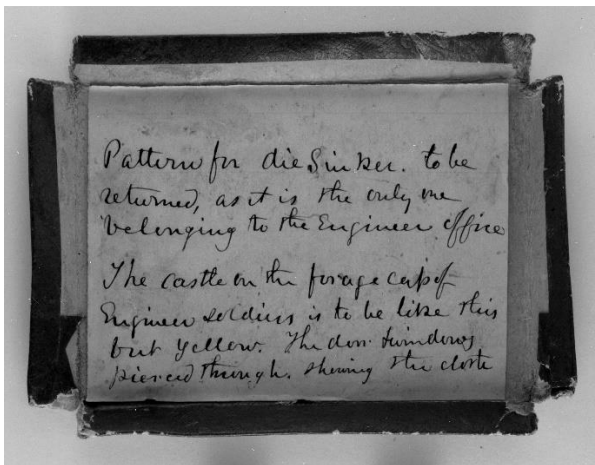 Pattern for die Sinker. to be
returned, as it is the only one
belonging to the Engineer office
The castle on the forage cap of
Engineer soldiers is to be like this
but yellow. The door & windows
pierced through. showing the cloth